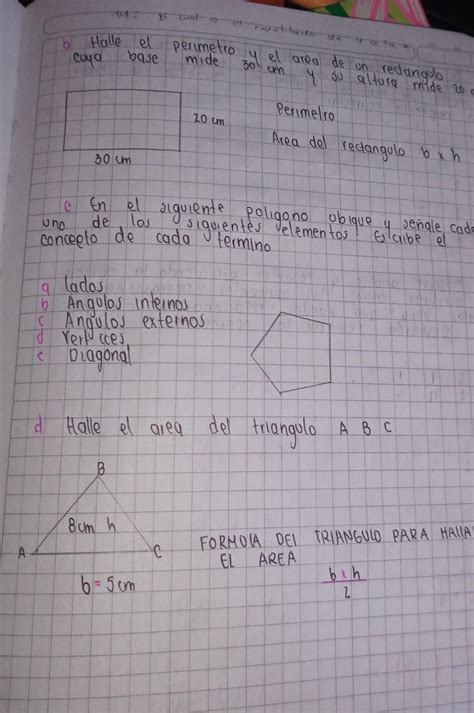 b Halle el perimetro y el area de un rectangulo
cuya base mide 30 cm y su altura mide 20
20 cm
Perimetro
Area del rectangulo b x h
30 cm
c En el siguiente poligono obique y señale cada
uno de los siguientes elementos! Escribe el
concepto de cada termino
a lados
b Angulos internos
c Angulos externos
d vertices
e Diagonal
d Halle el area del triangulo A B C
B
8cm h
A
C
b = 5cm
FORMOLA DEL TRIANGULO PARA HALLA
EL AREA
b x h
2